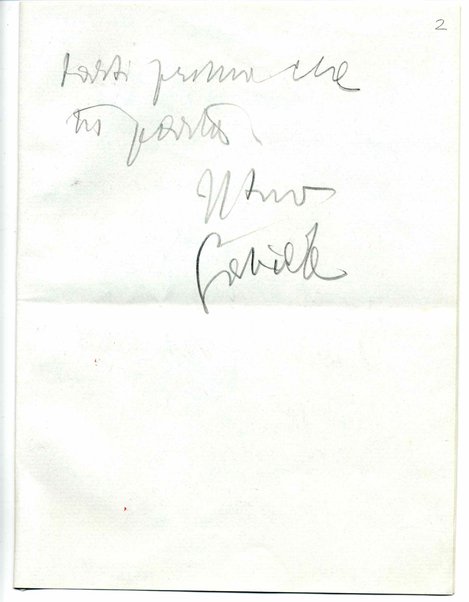 2
tarti prima che
tu parta.
Il tuo
Gabriele